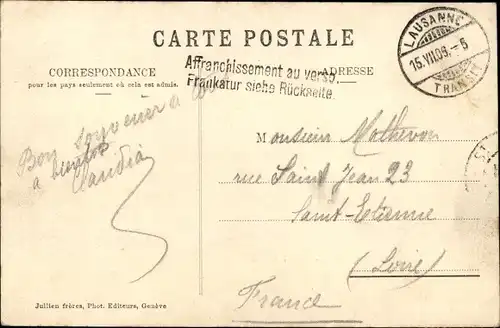 CARTE POSTALE
LAUSANNE
15.VII.09.-5
TRANSIT
Affranchissement au verso.
Frankatur siehe Rückseite.
CORRESPONDANCE
pour les pays seulement où cela est admis.
ADRESSE
Bon souvenir à
à bientôt
Claudia
Monsieur Mathevon
rue Saint Jean 23
Saint-Etienne
(Loire)
France
Jullien frères, Phot. Editeurs, Genève